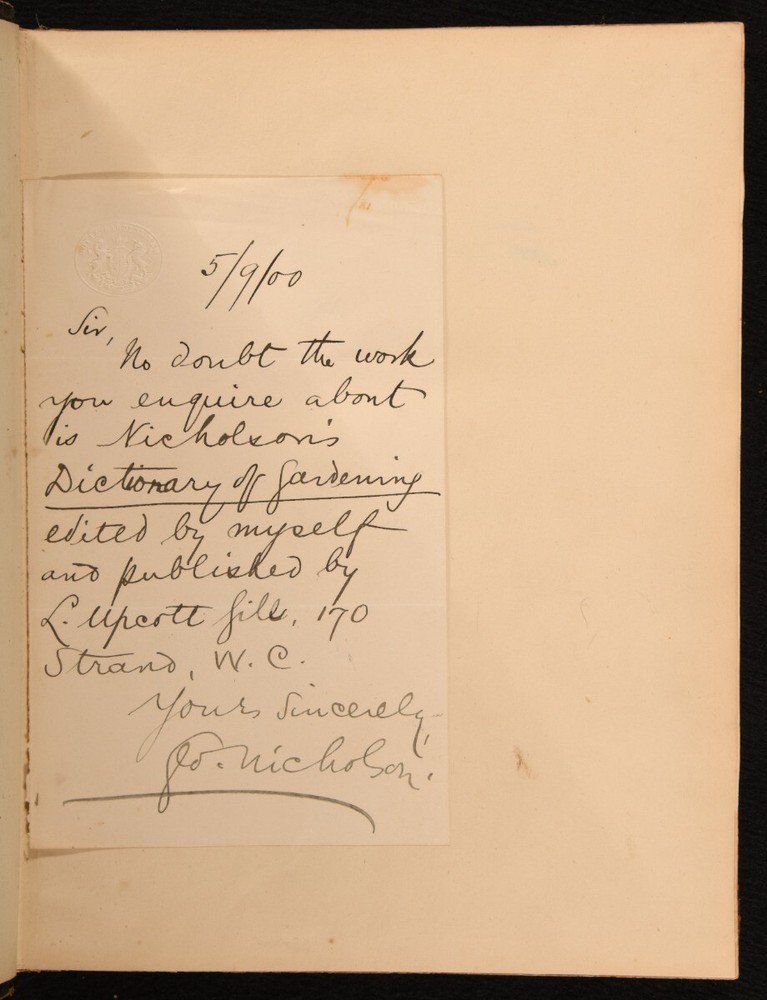 5/9/00
Sir,
No doubt the work
you enquire about
is Nicholson's
Dictionary of Gardening
edited by myself
and published by
L. Upcott Gill, 170
Strand, W. C.
Yours Sincerely,
Geo. Nicholson.